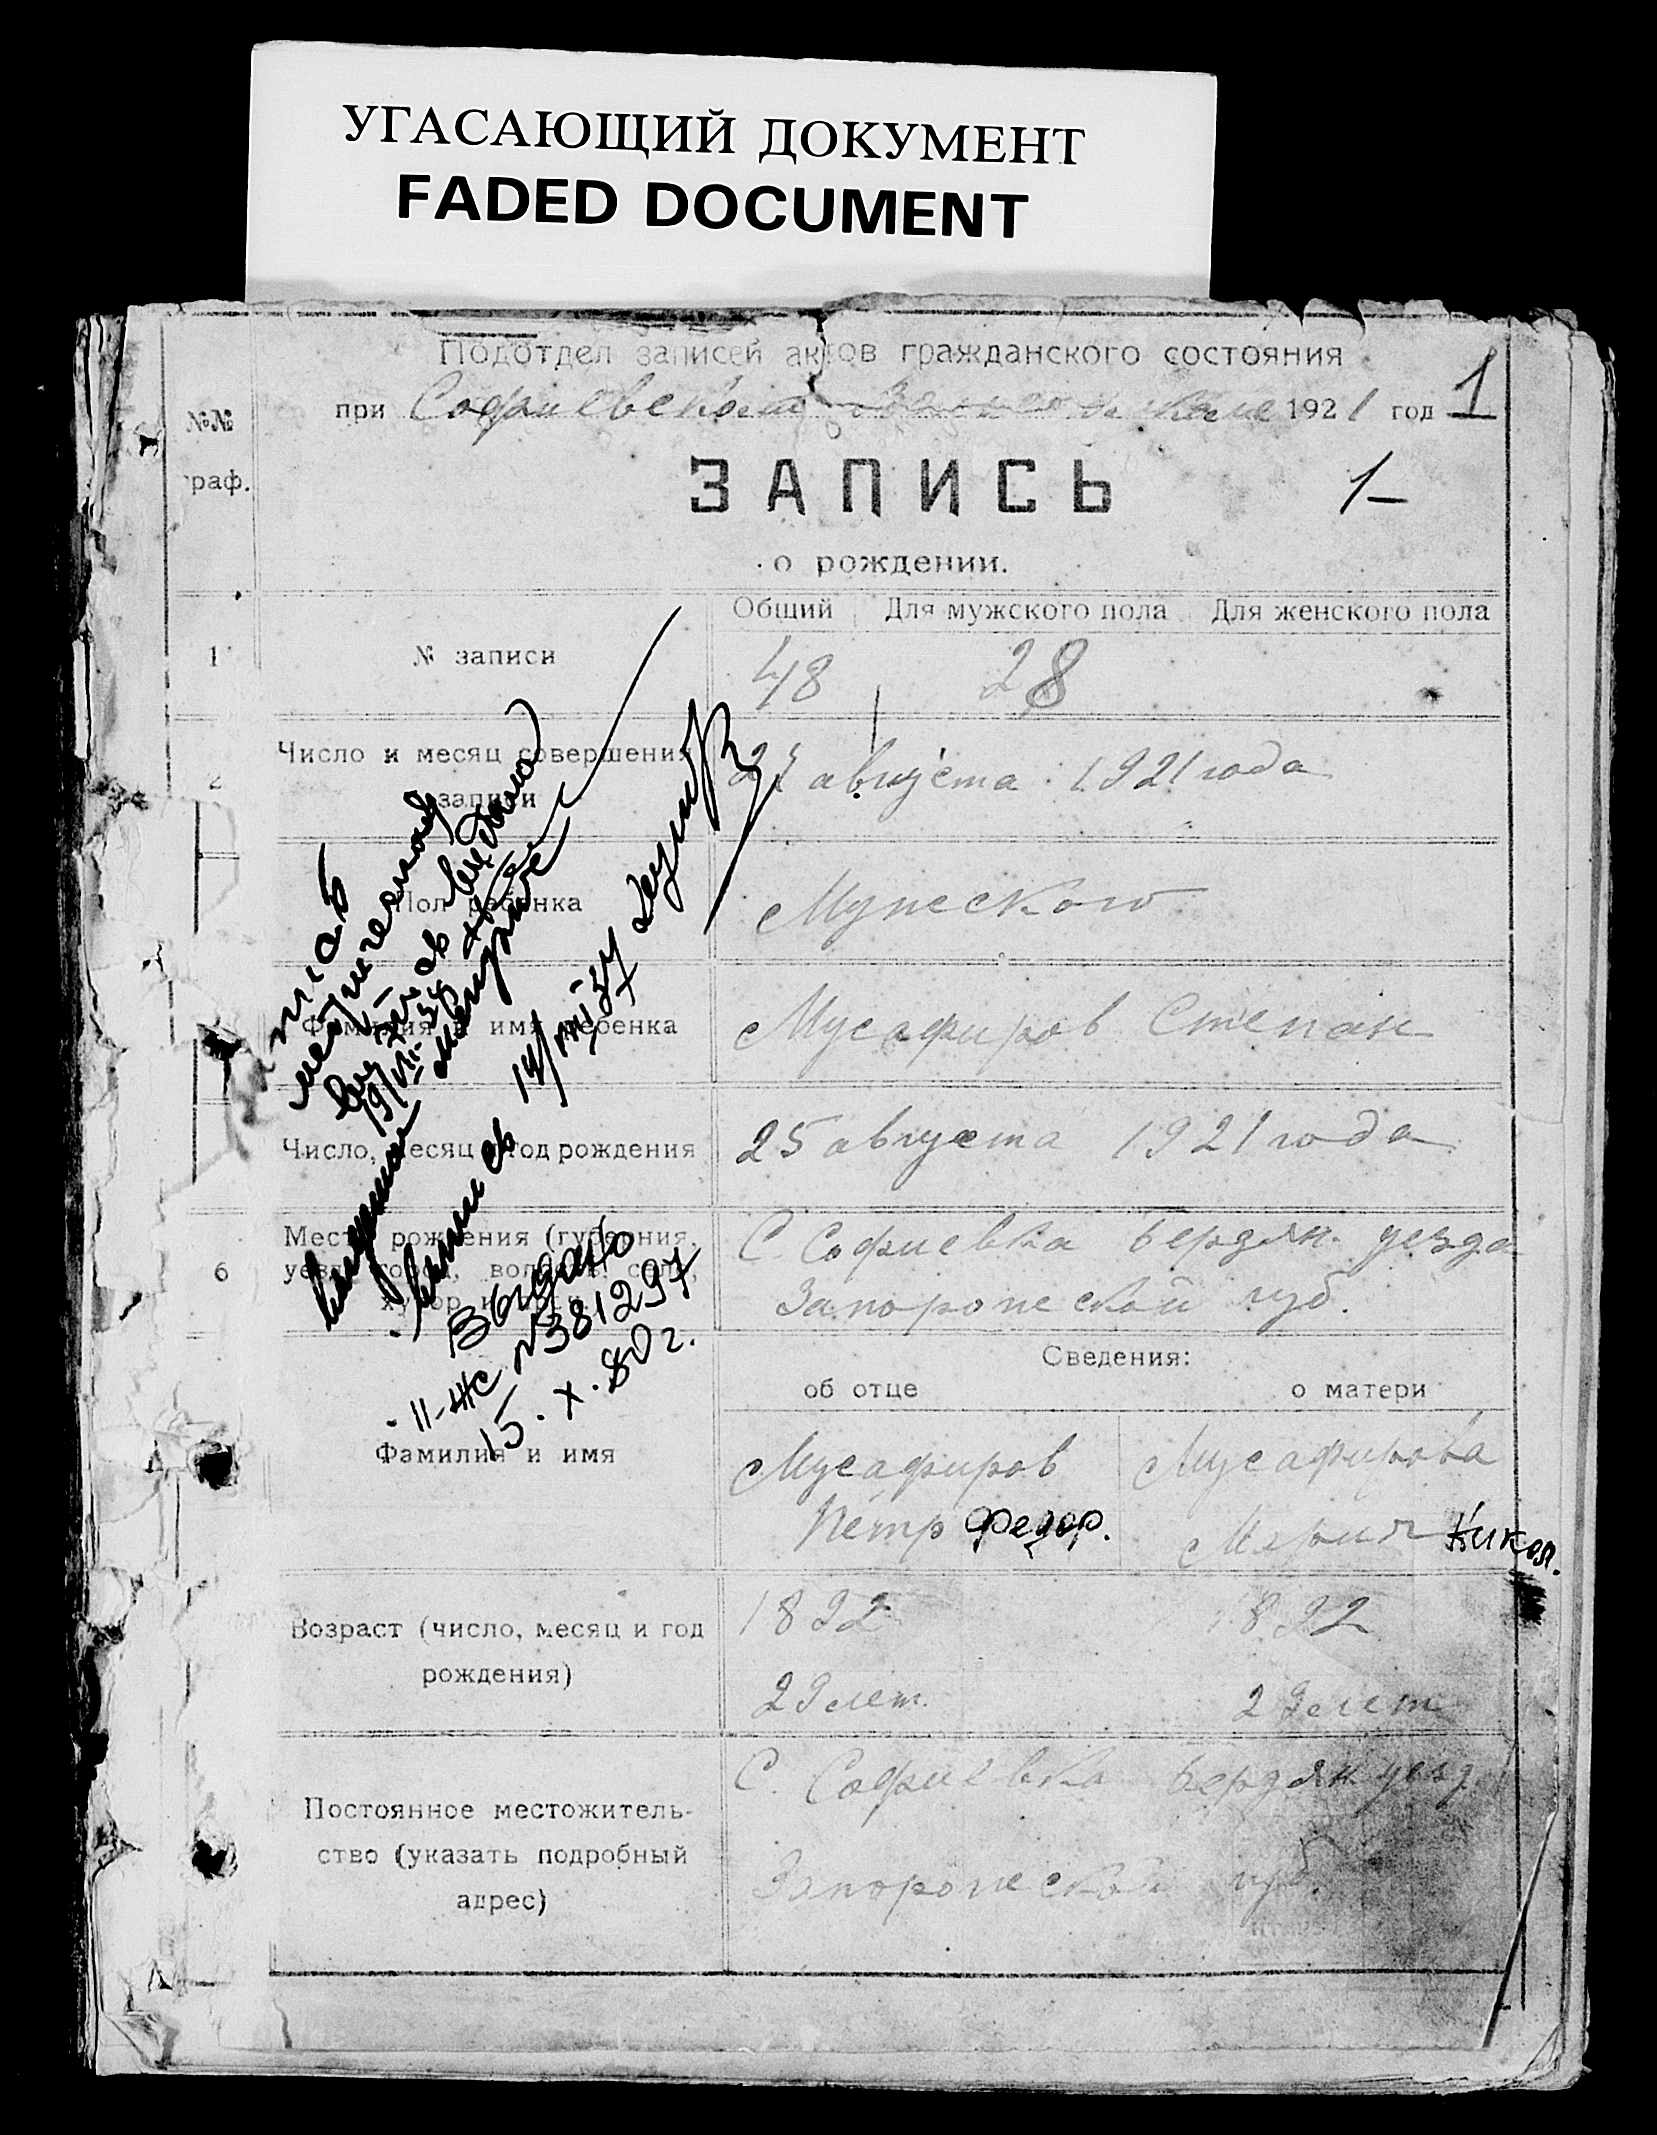 УГАСАЮЩИЙ ДОКУМЕНТ
FADED DOCUMENT
Подотдел записей актов гражданского состояния
№№ граф.
при Софиевском 1921 год 1
ЗАПИСЬ
1-
о рождении.
Общий Для мужского пола Для женского пола
1 № записи 48 28
2 Число и месяц совершения записи
августа 1921 года
Пол ребенка Мужского
Фамилия и имя ребенка Мусафиров Степан
Число, месяц и год рождения 25 августа 1921 года
6 Место рождения (губерния, уезд, город, волость, село, хутор и проч.)
С. Софиевка Бердян. уезда
Запорожской губ.
Сведения:
об отце о матери
Фамилия и имя
Мусафиров Мусафирова
Петр Федор. Мария Никол.
Возраст (число, месяц и год рождения)
1892 1892
29 лет. 29 лет
Постоянное местожительство (указать подробный адрес)
С. Софиевка Бердян. уезд.
Запорожской губ.
Выдано
II-ЖС №381297
15.X.80г.